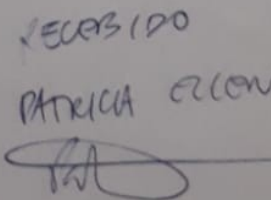 RECEBIDO
PATRICIA ELLEN